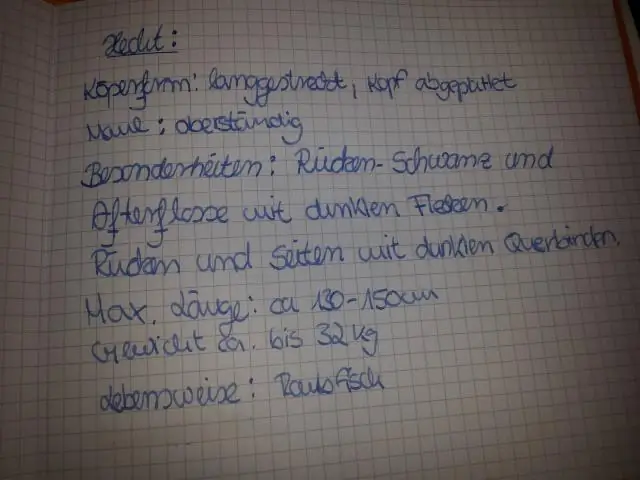 Hecht:
Köperform: langgestreckt, Kopf abgeplattet
Maul: oberständig
Besonderheiten: Rücken-Schwanz und
Afterflosse mit dunklen Flecken.
Rücken und Seiten mit dunklen Querbinden.
Max. Länge: ca 130-150cm
Gewicht ca. bis 32 kg
Lebensweise: Raubfisch